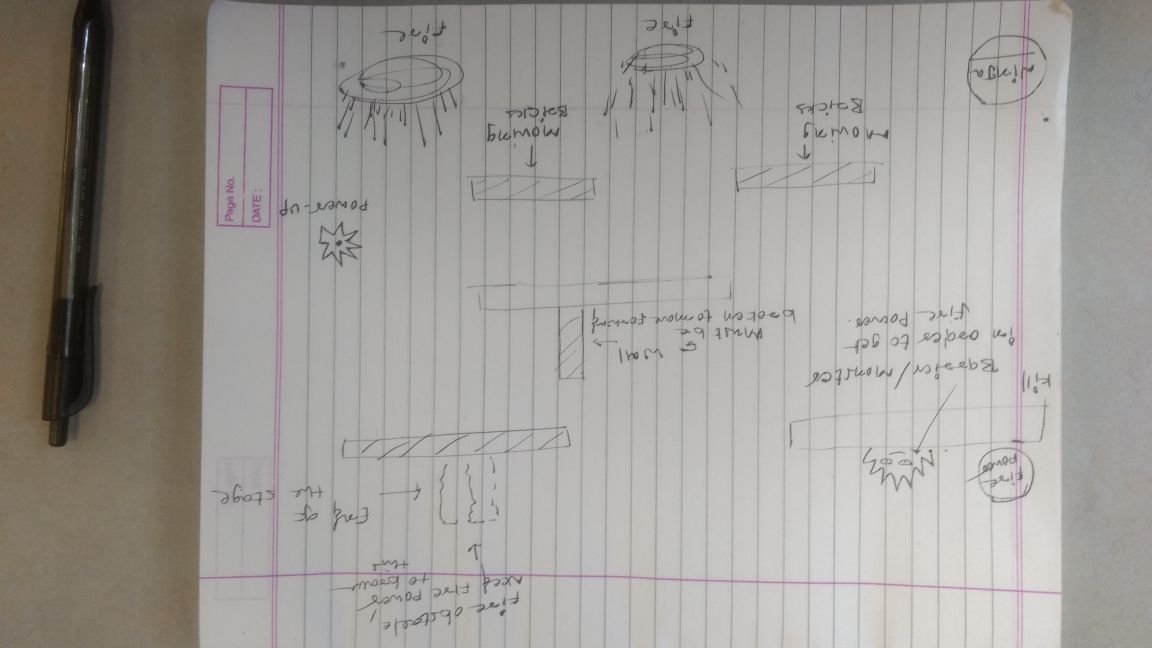 Fire obstacle,
Need Fire Power
to brave
this
End of
the stage
Fire
power
Kill
Barrier/Monster
in order to get
fire Power.
Wall
Must be
broken to move forward
Power-UP
Moving
Bricks
Moving
Bricks
Ninja
Fire
Fire
Page No.
DATE :